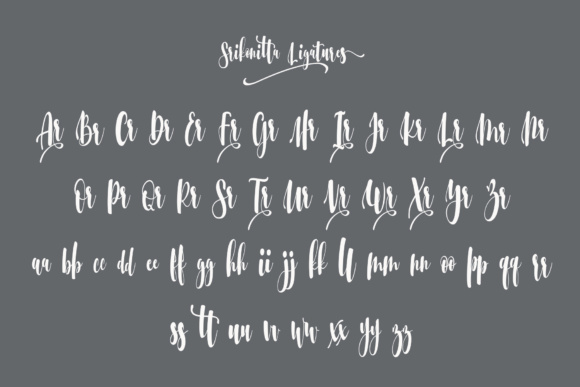 Srikonitta Ligatures
Ar Br Cr Dr Er Fr Gr Hr Ir Jr Kr Lr Mr Nr
Or Pr Qr Rr Sr Tr Ur Vr Wr Xr Yr Zr
aa bb cc dd ee ff gg hh ii jj kk ll mm nn oo pp qq rr
ss tt uu vv ww xx yy zz